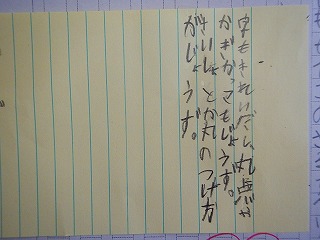 字もきれいだし、丸点や
かぎかっこもじょうず。
さいしょとか丸のつけ方
がじょうず。